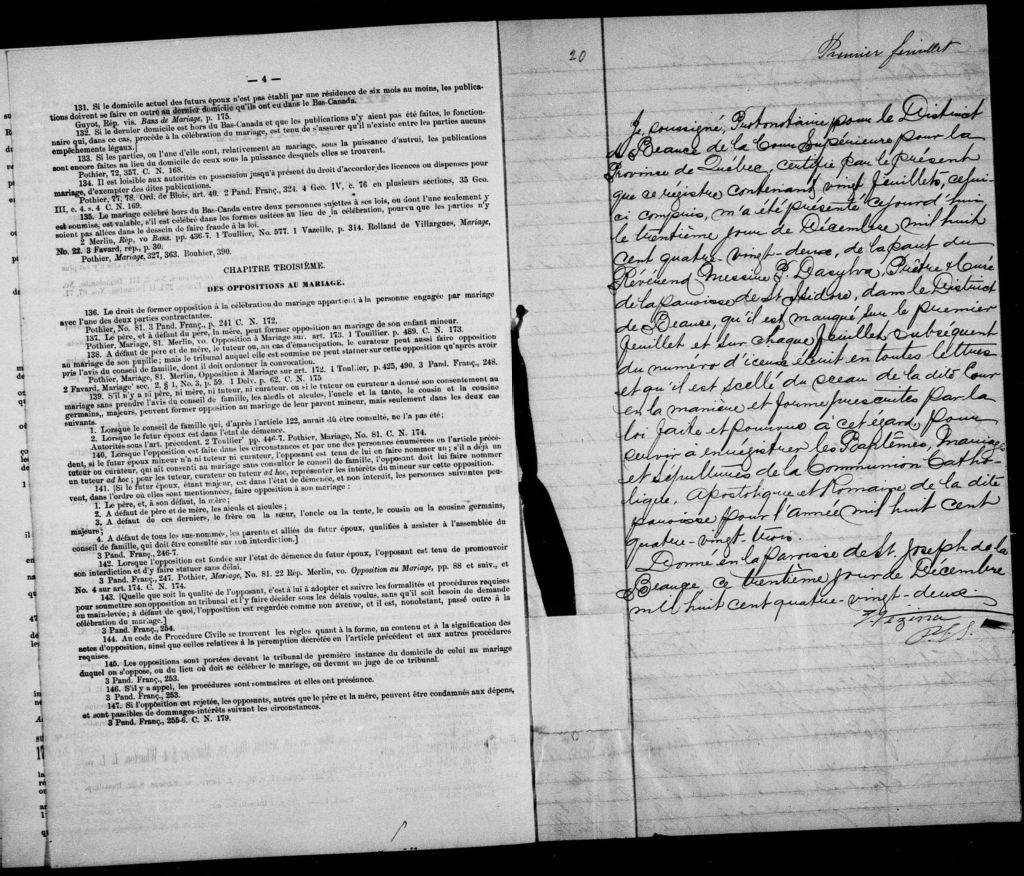 — 4 —
131. Si le domicile actuel des futurs époux n'est pas établi par une résidence de six mois au moins, les publica-
tions doivent se faire en outre au dernier domicile qu'ils ont eu dans le Bas-Canada.
Guyot, Rép. vis. Bans de Mariage, p. 175.
132. Si le dernier domicile est hors du Bas-Canada et que les publications n'y aient pas été faites, le fonction-
naire qui, dans ce cas, procède à la célébration du mariage, est tenu de s'assurer qu'il n'existe entre les parties aucuns
empêchements légaux.]
133. Si les parties, ou l'une d'elle sont, relativement au mariage, sous la puissance d'autrui, les publications
sont encore faites au lieu du domicile de ceux sous la puissance desquels elles se trouvent.
Pothier, 72, 357. C. N. 168.
134. Il est loisible aux autorités en possession jusqu'à présent du droit d'accorder des licences ou dispenses pour
mariage, d'exempter des dites publications.
Pothier, 77, 78. Ord. de Blois, art. 40. 2 Pand. Franç., 324. 4 Geo. IV, c. 76 en plusieurs sections, 35 Geo.
III, c. 4. s. 4 C. N. 169.
135. Le mariage célébré hors du Bas-Canda entre deux personnes sujettes à ses lois, ou dont l'une seulement y
est soumise, est valable, s'il est célébré dans les formes usitées au lieu de la célébration, pourvu que les parties n'y
soient pas allées dans le dessein de faire fraude à la loi.
2 Merlin, Rép. vo Bans. pp. 436-7. 1 Toullier, No. 577. 1 Vazeille, p. 314. Rolland de Villargues, Mariage,
No. 22. 3 Favard, rép., p. 30.
Pothier, Mariage, 327, 363. Bouhier, 390.
CHAPITRE TROISIÈME.
DES OPPOSITIONS AU MARIAGE.
136. Le droit de former opposition à la célébration du mariage appartient à la personne engagée par mariage
avec l'une des deux parties contractantes.
Pothier, No. 81. 3 Pand. Franç., p. 241 C. N. 172.
137. Le père, et à défaut du père, la mère, peut former opposition au mariage de son enfant mineur.
Pothier, Mariage, 81. Merlin, vo. Opposition à Mariage sur. art. 173. 1 Touillier. p. 489. C. N. 173.
138. A défaut de père et de mère, le tuteur ou, au cas d'émancipation, le curateur peut aussi faire opposition
au mariage de son pupille; mais le tribunal auquel elle est soumise ne peut statuer sur cette opposition qu'après avoir
pris l'avis du conseil de famille, dont il doit ordonner la convocation.
Pothier, Mariage, 81. Merlin, Opposition à Mariage sur art. 172. 1 Toullier, p. 425, 490. 3 Pand. Franç., 248.
2 Favard, Mariage sec. 2, § 1, No. 3, p. 59. 1 Delv. p. 62. C. N. 175
139. S'il n'y a ni père, ni mère, ni tuteur, ni curateur, ou si le tuteur ou curateur a donné son consentement au
mariage sans prendre l'avis du conseil de famille, les aïeuls et aïeules, l'oncle et la tante, le cousin et la cousine
germains, majeurs, peuvent former opposition au mariage de leur parent mineur, mais seulement dans les deux cas
suivants.
1. Lorsque le conseil de famille qui, d'après l'article 122, aurait dû être consulté, ne l'a pas été;
2. Lorsque le futur époux est dans l'état de démence.
Autorités sous l'art. précédent. 2 Toullier pp. 446-7. Pothier, Mariage, No. 81. C. N. 174.
140. Lorsque l'opposition est faite dans les circonstances et par une des personnes énumérées en l'article précé-
dent, si le futur époux mineur n'a ni tuteur ni curateur, l'opposant est tenu de lui en faire nommer un; s'il a déjà un
tuteur ou curateur, qui ait consenti au mariage sans consulter le conseil de famille, l'opposant doit lui faire nommer
un tuteur ad hoc; pour les tuteur, curateur tuteur ad hoc, représenter les intérêts du mineur sur cette opposition.
141. [Si le futur époux, étant majeur, est dans l'état de démence, et non interdit, les personnes suivantes peu-
vent, dans l'ordre où elles sont mentionnées, faire opposition à son mariage:
1. Le père, et, à son défaut, la mère;
2. A défaut de père et de mère, les aïeuls et aïeules;
3. A défaut de ces derniers, le frère ou la sœur, l'oncle ou la tente, le cousin ou la cousine germains,
majeurs;
4. A défaut de tous les sus-nommés, les parents et alliés du futur époux, qualifiés à assister à l'assemblée du
conseil de famille, qui doit être consulté sur son interdiction.]
3 Pand. Franç., 246-7.
142. Lorsque opposition est fondée sur l'état de démence du futur époux, l'opposant est tenu de promouvoir
son interdiction et d'y faire statuer sans délai.
3 Pand. Franç., 247. Pothier, Mariage, No. 81. 22 Rép. Merlin, vo. Opposition au Mariage, pp. 88 et suiv., et
No. 4 sur art. 174. C. N. 174.
143. [Quelle que soit la qualité de l'opposant, c'est à lui à adopter et suivre les formalités et procédures requises
pour soumettre son opposition au tribunal et l'y faire décider sous les délais voulus, sans qu'il soit besoin de demande
en main-levée; à défaut de quoi, l'opposition est regardée comme non avenue, et il est, nonobstant, passé outre à la
célébration du mariage.]
3 Pand. Franç., 254.
144. Au code de Procédure Civile se trouvent les règles quant à la forme, au contenu et à la signification des
actes d'opposition, ainsi que celles relatives à la péremption décrétée en l'article précédent et aux autres procédures
requises.
145. Les oppositions sont portées devant le tribunal de première instance du domicile de celui au mariage
duquel on s'oppose, ou du lieu où doit se célébrer le mariage, ou devant un juge de ce tribunal.
3 Pand. Franç., 253.
146. S'il y a appel, les procédures sont sommaires et elles ont préséance.
3 Pand. Franç., 253.
147. Si l'opposition est rejetée, les opposants, autres que le père et la mère, peuvent être condamnés aux dépens,
et sont passibles de dommages-intérêts suivant les circonstances.
3 Pand. Franç., 255-6. C. N. 179.
20
Premier feuillet
Je, soussigné, Protonotaire pour le District
de Beauce de la Cour Supérieure pour la
Province de Québec, certifie par le présent
que ce registre contenant vingt feuillets, celui-
ci compris, m'a été présenté cejourd'hui
le trentième jour de Décembre mil huit
cent quatre-vingt-deux, de la part du
Révérend Messire J. Dasylva, Prêtre & Curé
de la paroisse de St Isidore, dans le District
de Beauce, qu'il est marqué sur le premier
feuillet et sur chaque feuillet subséquent
du numéro d'iceux écrit en toutes lettres
et qu'il est scellé du sceau de la dite Cour
en la manière et forme prescrites par la
loi faite et pourvue à cet égard, pour
servir à enregistrer les Baptêmes, mariages
et sépultures de la Communion Catho-
lique, Apostolique et Romaine de la dite
paroisse pour l'année mil huit cent
quatre-vingt-trois.
Donné en la paroisse de St. Joseph de la
Beauce, ce trentième jour de Décembre
mil huit cent quatre-vingt-deux.
Vézina
P.C.S.